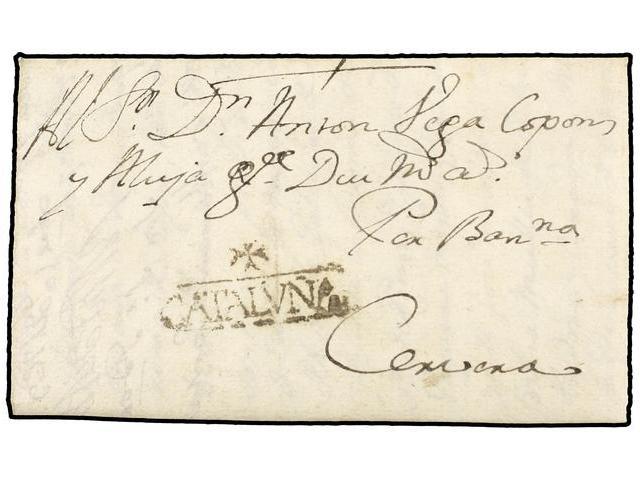 Al Sr. Dn Anton Vega Copons
y Muja gde Dios
Per Barna
CATALVÑA
Cervera